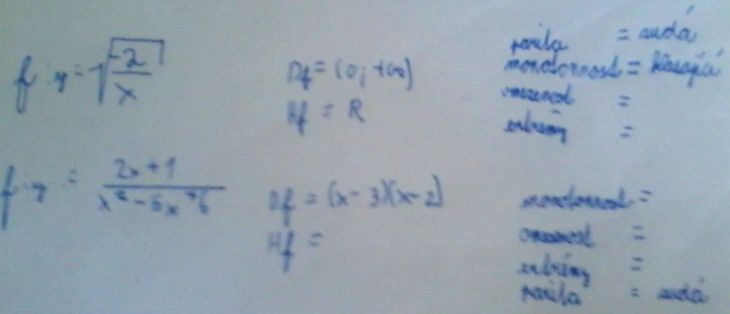 f: y = √(-2/x)
Df = (0; +∞)
Hf = R
parita = sudá
monotonnost = klesající
omezenost =
extrémy =
f: y = (2x+1)/(x²-5x+6)
Df = (x-3)(x-2)
Hf =
monotonnost =
omezenost =
extrémy =
parita = sudá